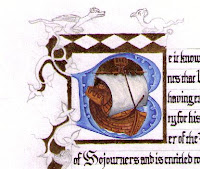 Be it know
nts that
having
ry for his
er of the
of Sojourners and is entitled